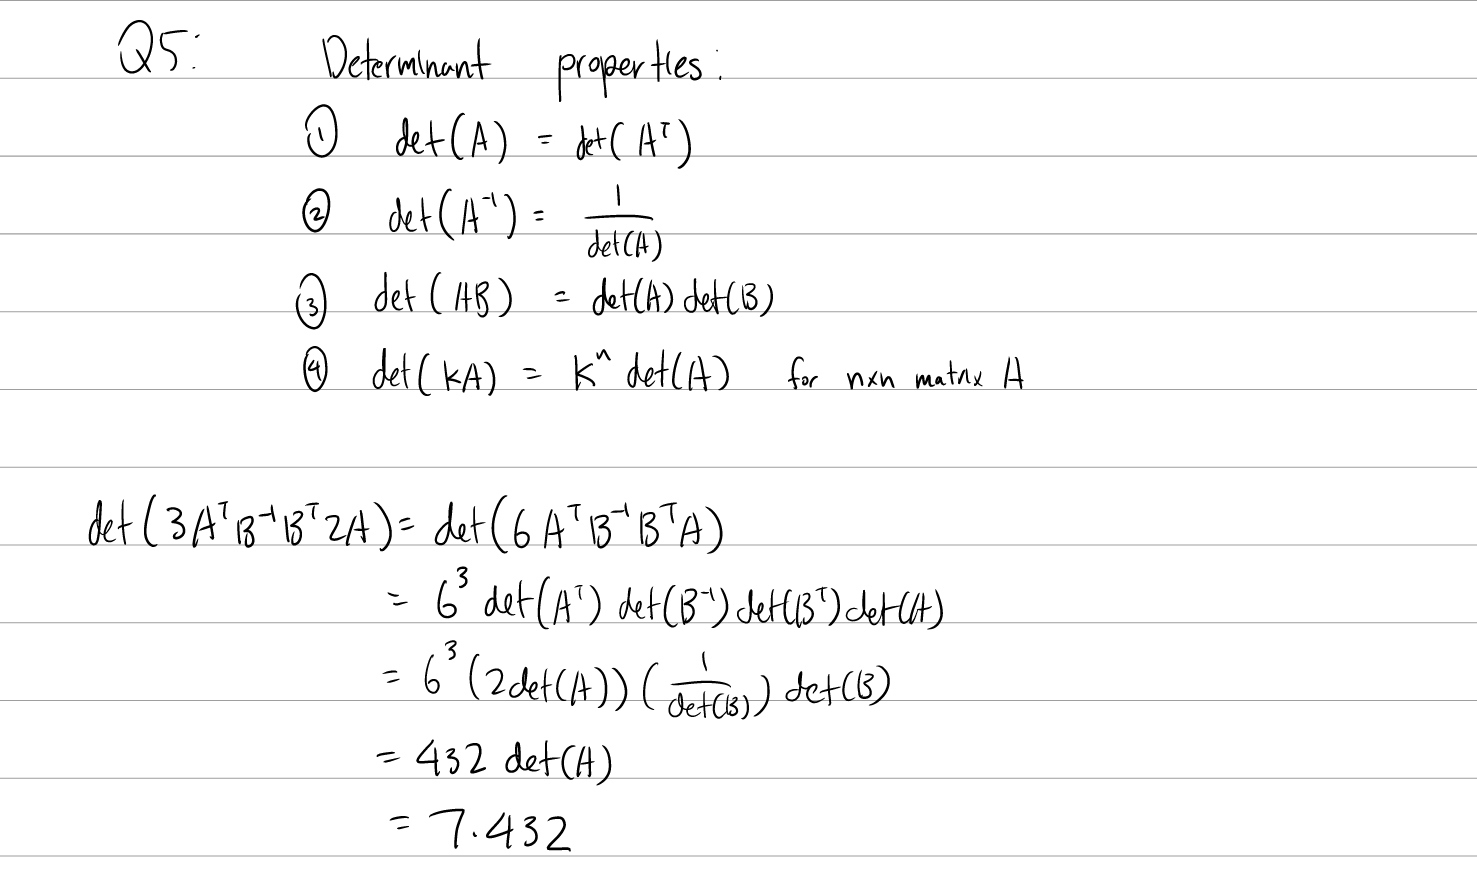 Q5: Determinant properties:
① det(A) = det(Aᵀ)
② det(A⁻¹) = 1/det(A)
③ det(AB) = det(A) det(B)
④ det(kA) = kⁿ det(A) for n×n matrix A
det(3AᵀB⁻¹Bᵀ2A) = det(6AᵀB⁻¹BᵀA)
= 6³ det(Aᵀ) det(B⁻¹) det(Bᵀ) det(A)
= 6³ (2det(A)) (1/det(B)) det(B)
= 432 det(A)
= 7·432